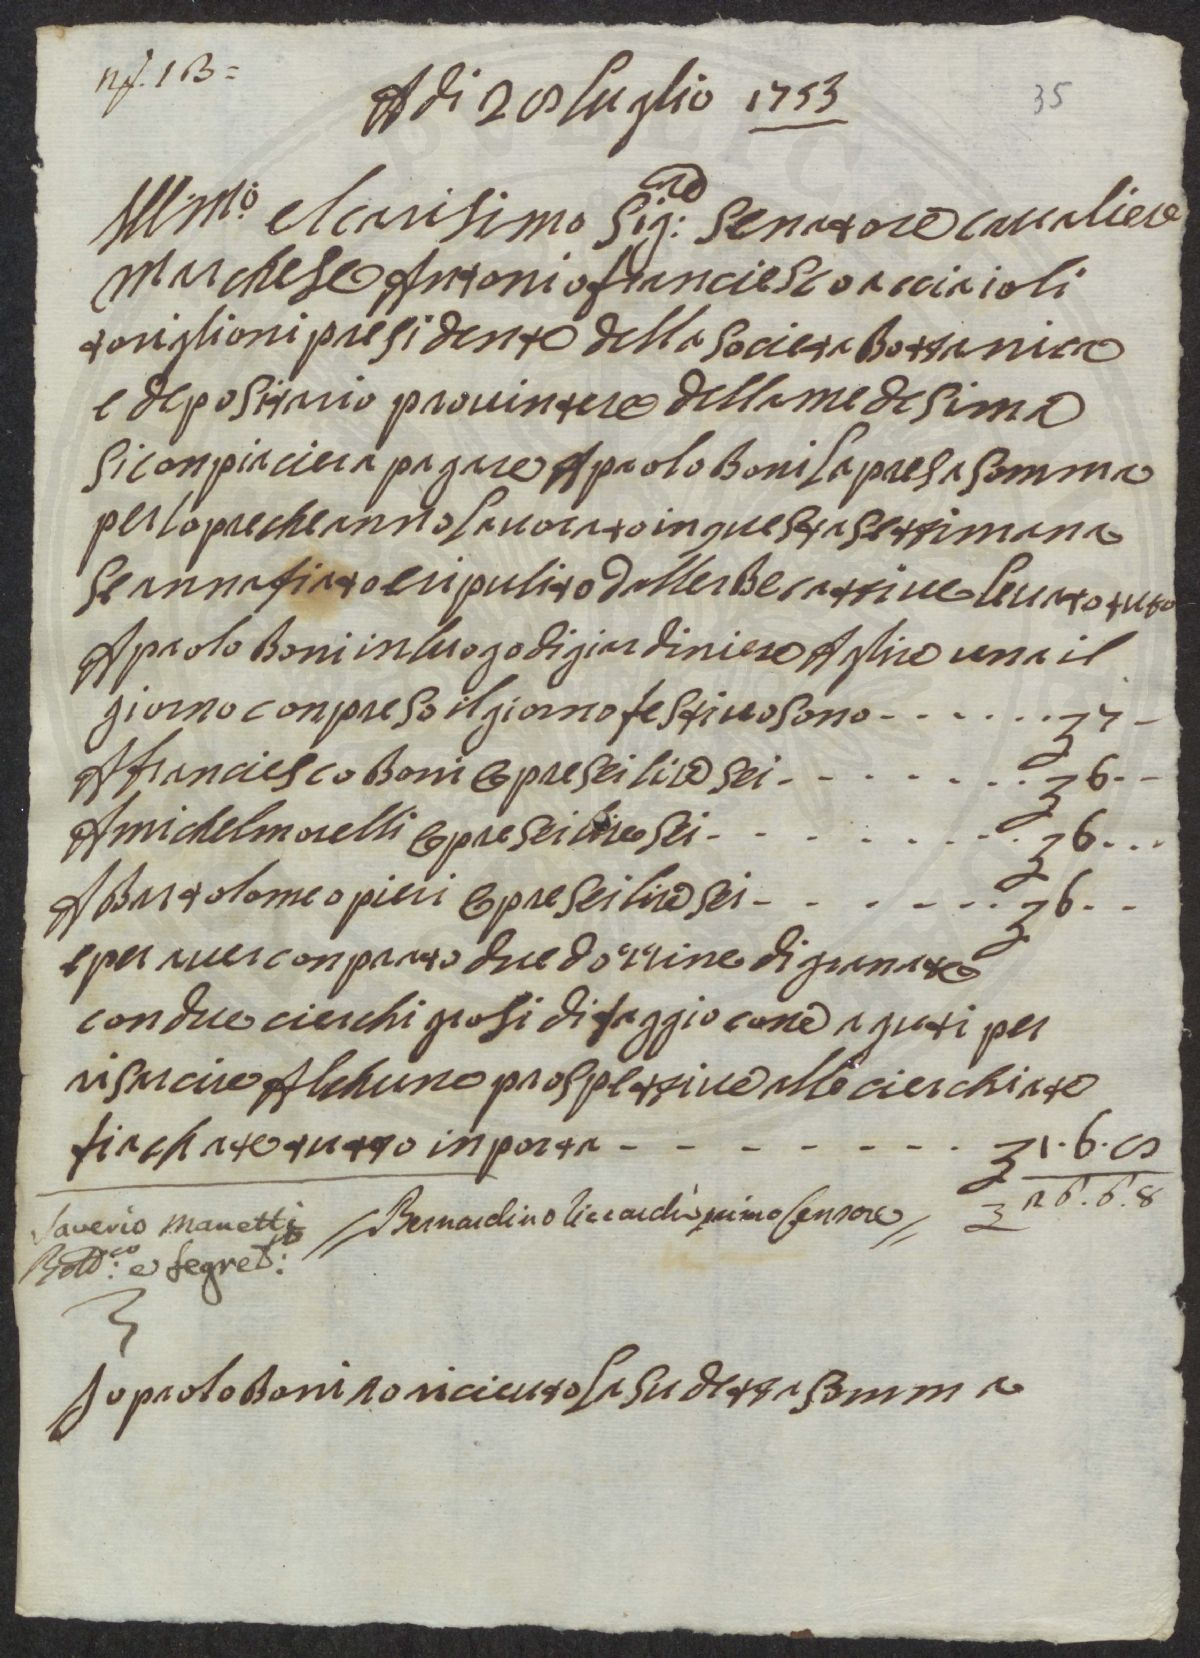 nº. 13=
35
A di 28 luglio 1753
Ill:mo e Clarisimo Sig:re Senatore Cavaliere
Marchese Antonio Franciesco Acciaioli
toriglioni presidente della Societa Bottanica
e depositario provintere della medesima
Si conpiaciera pagare A paolo Boni la presa Somma
per lopre che anno lavorato in questa Settimana
Se annafiato e ripulito dallerBe cattive levato tuto
A paolo Boni in luogo di giardiniere A lire una il
giorno conpreso il giorno festivo sono - - - - - - 7 -
A franciesco Boni e pre sei lire sei - - - - - - - 6 - -
A michel morelli e pre sei lire sei - - - - - - - - 6 - - -
A Bartolomeo pieri e pre sei lire sei - - - - - - - 6 - -
e per aver conprato due dozzine di granate
con due cierchi grosi di faggio con e aguti per
risarcire Alchune prospettive alle cierchiate
fiachate tutto inporta - - - - - - - - 1.6.8
26.6.8
Saverio Manetti
Bott:co e Segret:
// Bernardino Riccardi primo Censore //
Io paolo Boni o riciuto la Sudetta Somma